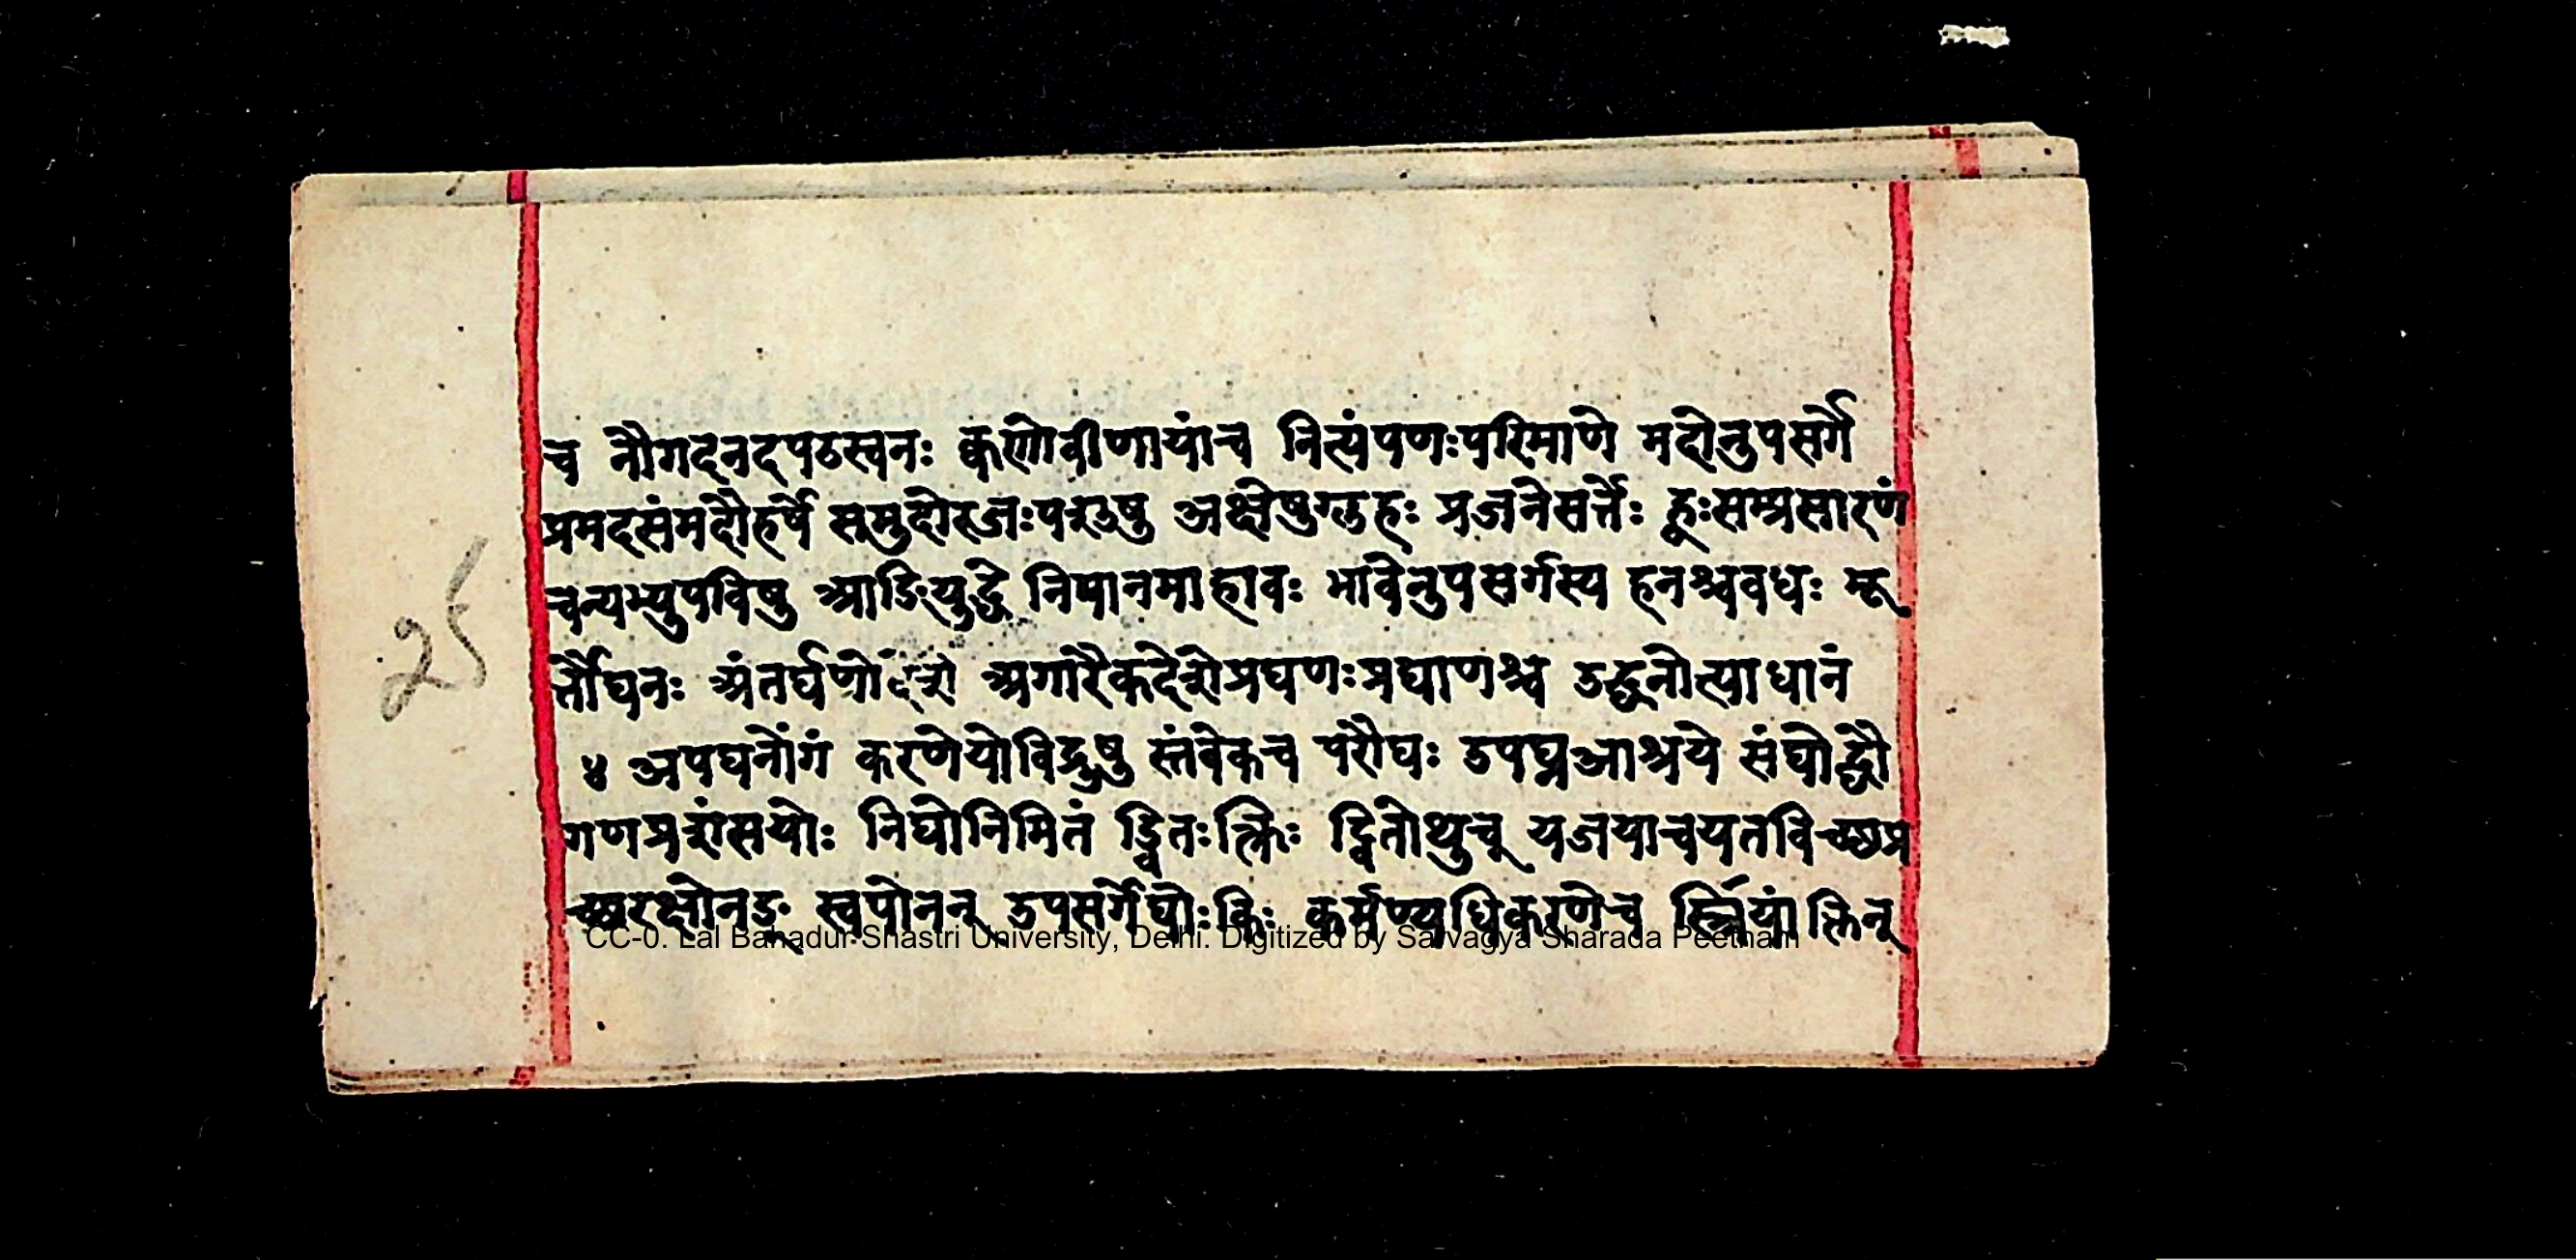 च नौगदनदपठस्वनः क्वणोवीणायांच नित्यंपणःपरिमाणे मदोनुपसर्गे
प्रमदसंमदौहर्षे समुदोरजःपशुषु अक्षेषुग्लहः प्रजनेसर्त्तेः ह्वःसम्प्रसारणं
चन्यभ्युपविषु आङियुद्धे निपानमाहावः भावेनुपसर्गस्य हनश्चवधः मू
र्त्तौघनः अंतर्घणोदेशे अगारैकदेशेप्रघणःप्रघाणश्च उद्धनोत्याधानं
४ अपघनोंगं करणेयोविद्रुषु स्तंबेकच परौघः उपघ्नआश्रये संघोद्धौ
25
गणप्रशंसयोः निघोनिमितं ड्वितःक्त्रिः ट्वितोथुच् यजयाचयतविच्छप्र
च्छरक्षोनङ् स्वपोनन् उपसर्गेघोःकिः कर्मण्यधिकरणेच स्त्रियां क्तिन्
CC-0. Lal Bahadur Shastri University, Delhi. Digitized by Sarvagya Sharada Peetham